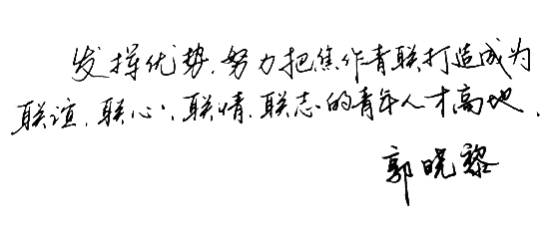 发挥优势,努力把焦作青联打造成为
联谊、联心、联情、联志的青年人才高地.
郭晓黎